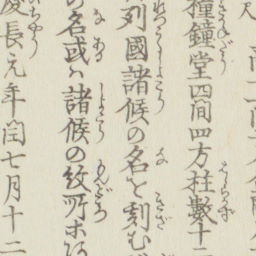 撞鐘堂四間四方柱數十
列國諸候の名を刻む
の名或ハ諸候の紋所ホ
慶長元年閏七月十二